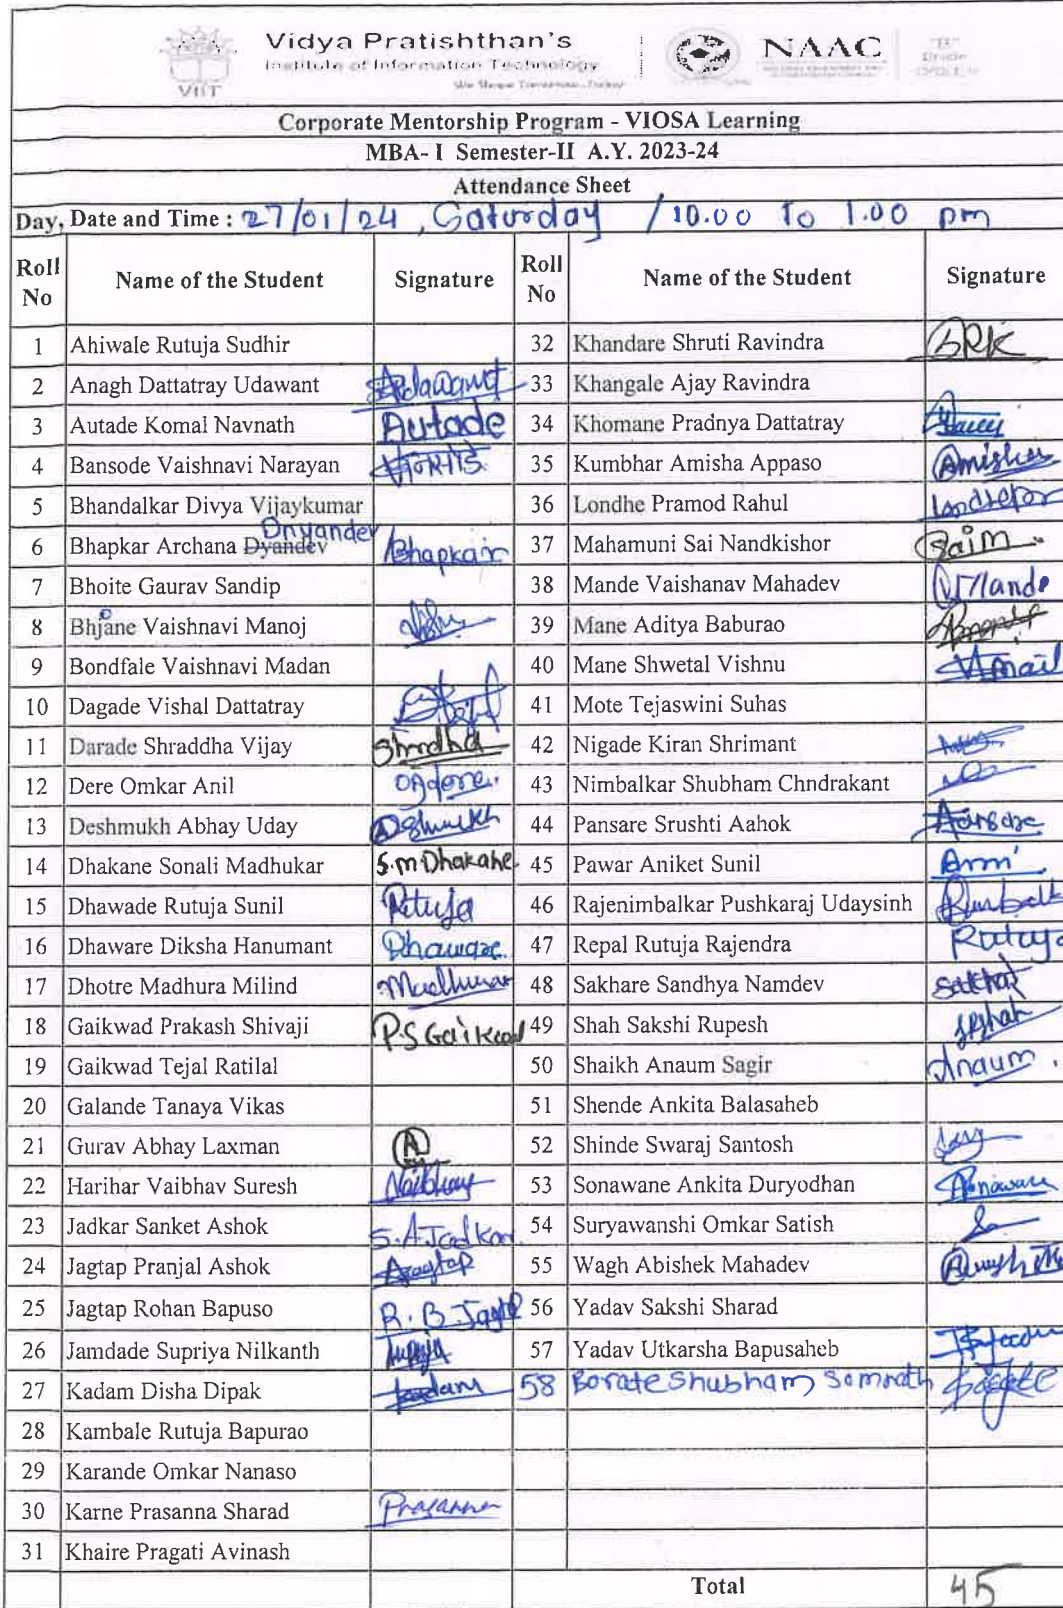 Vidya Pratishthan's
Institute of Information Technology
VIIT
NAAC
Corporate Mentorship Program - VIOSA Learning
MBA- I Semester-II A.Y. 2023-24
Attendance Sheet
Day, Date and Time : 27/01/24 , Saturday / 10.00 To 1.00 pm
Roll No Name of the Student Signature Roll No Name of the Student Signature
1 Ahiwale Rutuja Sudhir 32 Khandare Shruti Ravindra SRK
2 Anagh Dattatray Udawant 33 Khangale Ajay Ravindra
3 Autade Komal Navnath Autade 34 Khomane Pradnya Dattatray
4 Bansode Vaishnavi Narayan बनसोडे 35 Kumbhar Amisha Appaso
5 Bhandalkar Divya Vijaykumar 36 Londhe Pramod Rahul
Dnyandev
6 Bhapkar Archana Dyandev Bhapkar 37 Mahamuni Sai Nandkishor Saim
7 Bhoite Gaurav Sandip 38 Mande Vaishanav Mahadev
8 Bhjane Vaishnavi Manoj 39 Mane Aditya Baburao
9 Bondfale Vaishnavi Madan 40 Mane Shwetal Vishnu
10 Dagade Vishal Dattatray 41 Mote Tejaswini Suhas
11 Darade Shraddha Vijay Shrdha 42 Nigade Kiran Shrimant
12 Dere Omkar Anil 43 Nimbalkar Shubham Chndrakant
13 Deshmukh Abhay Uday 44 Pansare Srushti Aahok
14 Dhakane Sonali Madhukar S.m Dhakane 45 Pawar Aniket Sunil
15 Dhawade Rutuja Sunil Rutuja 46 Rajenimbalkar Pushkaraj Udaysinh
16 Dhaware Diksha Hanumant Dhaware 47 Repal Rutuja Rajendra Rutuja
17 Dhotre Madhura Milind Madhura 48 Sakhare Sandhya Namdev
18 Gaikwad Prakash Shivaji P.S Gaikwad 49 Shah Sakshi Rupesh
19 Gaikwad Tejal Ratilal 50 Shaikh Anaum Sagir Anaum .
20 Galande Tanaya Vikas 51 Shende Ankita Balasaheb
21 Gurav Abhay Laxman 52 Shinde Swaraj Santosh
22 Harihar Vaibhav Suresh Vaibhav 53 Sonawane Ankita Duryodhan
23 Jadkar Sanket Ashok S.A.Jadkar 54 Suryawanshi Omkar Satish
24 Jagtap Pranjal Ashok 55 Wagh Abishek Mahadev
25 Jagtap Rohan Bapuso R. B. Jagtap 56 Yadav Sakshi Sharad
26 Jamdade Supriya Nilkanth 57 Yadav Utkarsha Bapusaheb
27 Kadam Disha Dipak Kadam 58 Borate Shubham Somnath
28 Kambale Rutuja Bapurao
29 Karande Omkar Nanaso
30 Karne Prasanna Sharad Prasanna
31 Khaire Pragati Avinash
Total 45